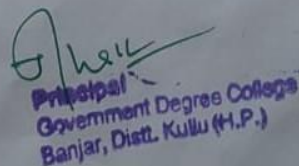 Principal
Government Degree College
Banjar, Distt. Kullu (H.P.)